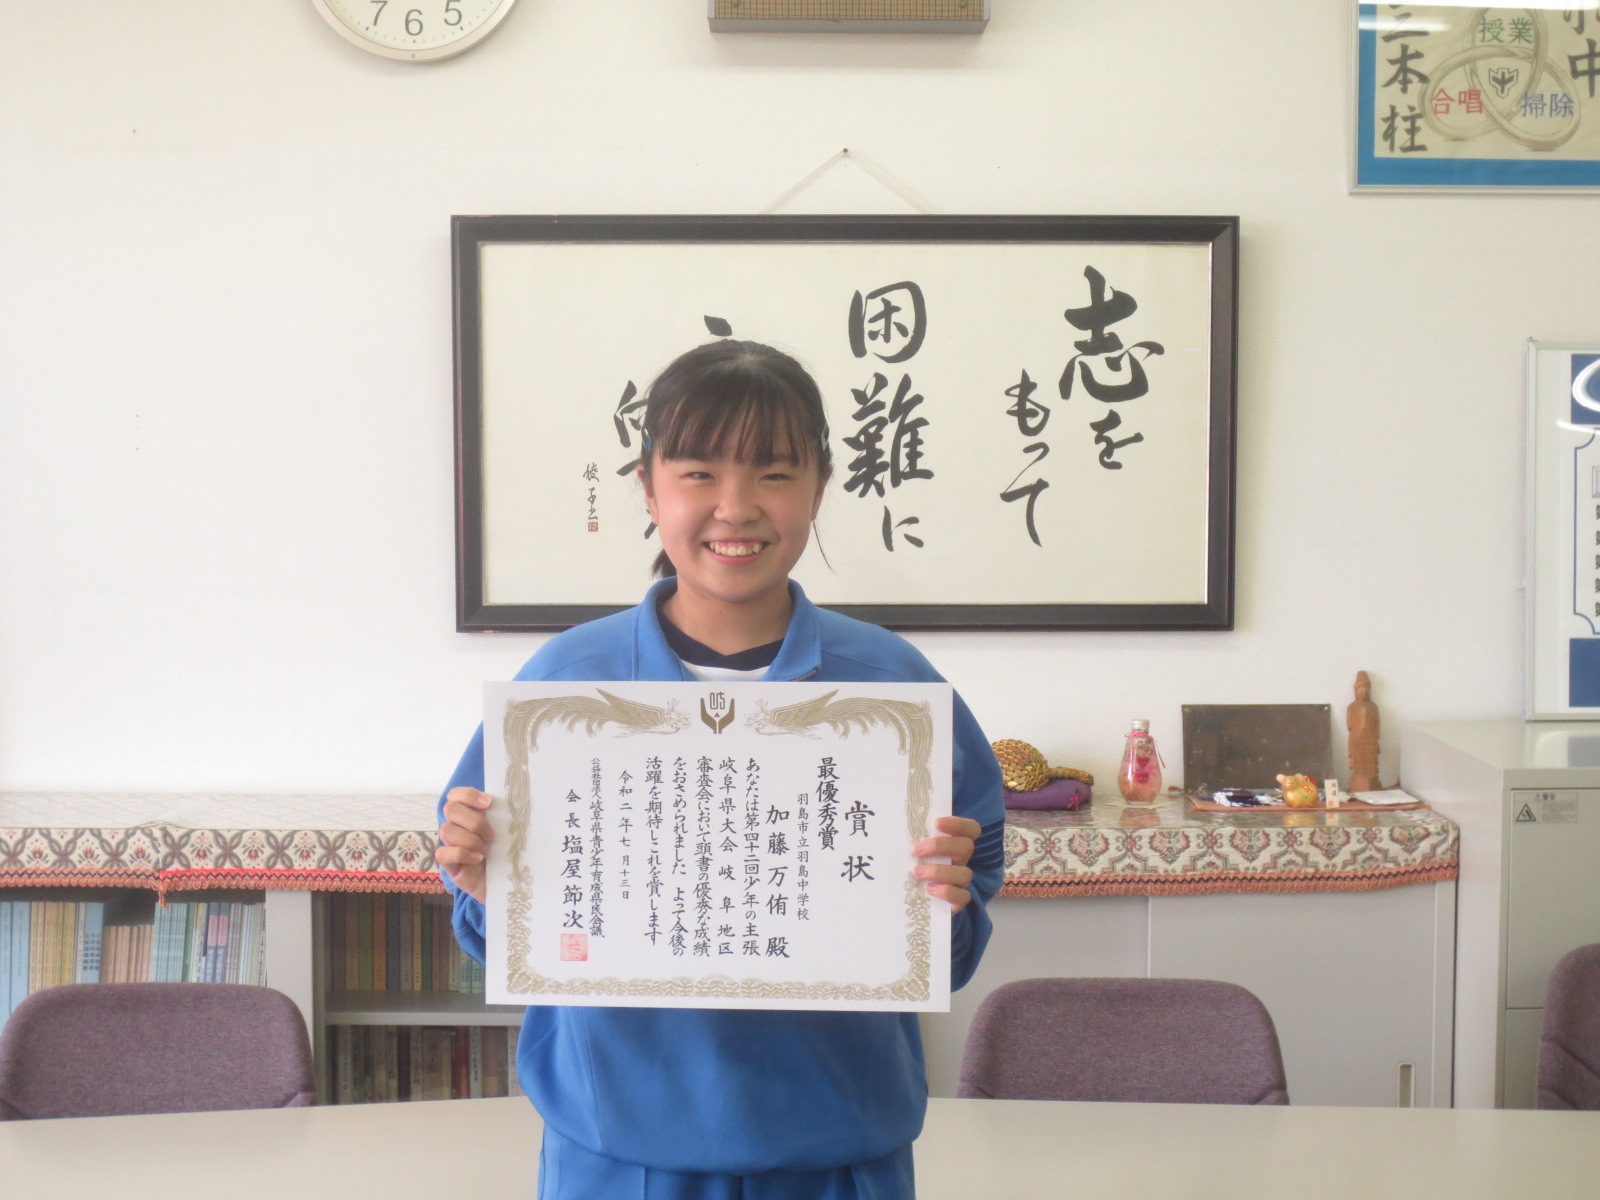 7 6 5
三本柱
授業
合唱
掃除
中
志を
もって
困難に
賞状
最優秀賞
羽島市立羽島中学校
加藤万侑 殿
あなたは第四十二回少年の主張
岐阜県大会 岐阜地区
審査会において頭書の優秀な成績
をおさめられました よって今後の
活躍を期待しこれを賞します
令和二年七月十三日
公益社団法人 岐阜県青少年育成県民会議
会長 塩屋節次